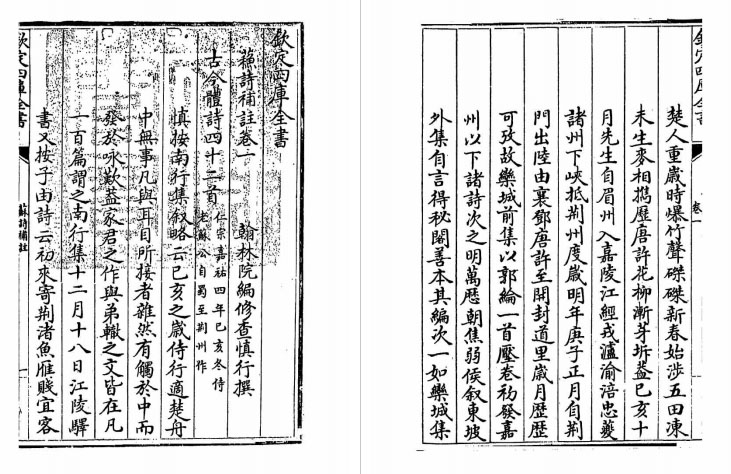 欽定四庫全書
蘇詩補註卷一
翰林院編修查慎行撰
古今體詩四十二首
仁宗嘉祐四年己亥冬侍
老蘇公自蜀至荆州作
慎按南行集叙略云己亥之歳侍行適楚舟
中無事凡與耳目所接者雜然有觸於中而
發於咏歎葢家君之作與弟轍之文皆在凡
一百篇謂之南行集十二月十八日江陵驛
書又按子由詩云初來寄荆渚魚雁賤宜客
欽定四庫全書
蘇詩補註
卷一
楚人重歳時爆竹聲磔磔新春始涉五田凍
未生麥相攜歴唐許花柳漸芽坼葢己亥十
月先生自眉州入嘉陵江經戎瀘渝涪忠夔
諸州下峽抵荆州度歳明年庚子正月自荆
門出陸由襄鄧唐許至開封道里歳月歴歴
可攷故欒城前集以郭綸一首壓卷初發嘉
州以下諸詩次之明萬厯朝焦弱侯叙東坡
外集自言得秘閣善本其編次一如欒城集